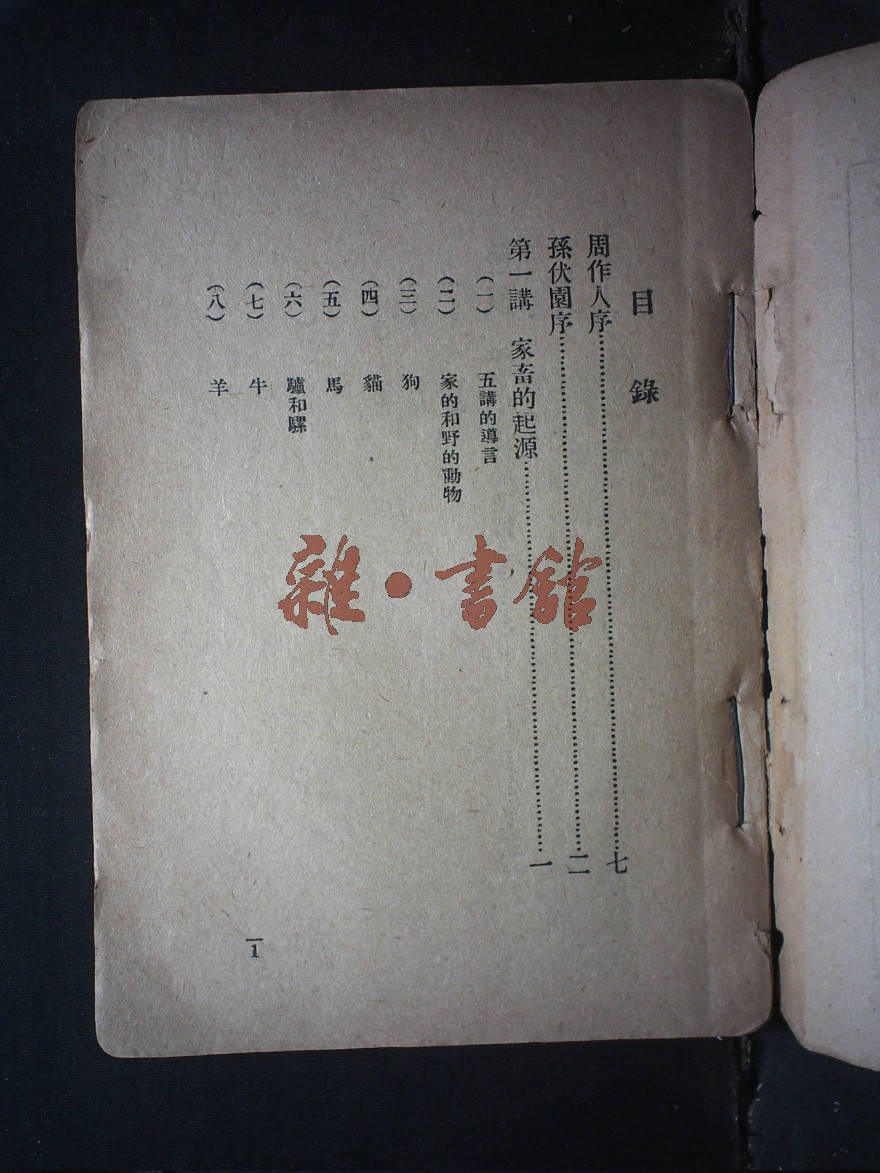 目錄
周作人序……七
孫伏園序……二
第一講 家畜的起源……一
(一) 五講的導言
(二) 家的和野的動物
(三) 狗
(四) 貓
(五) 馬
(六) 驢和騾
(七) 牛
(八) 羊
1
雜·書館